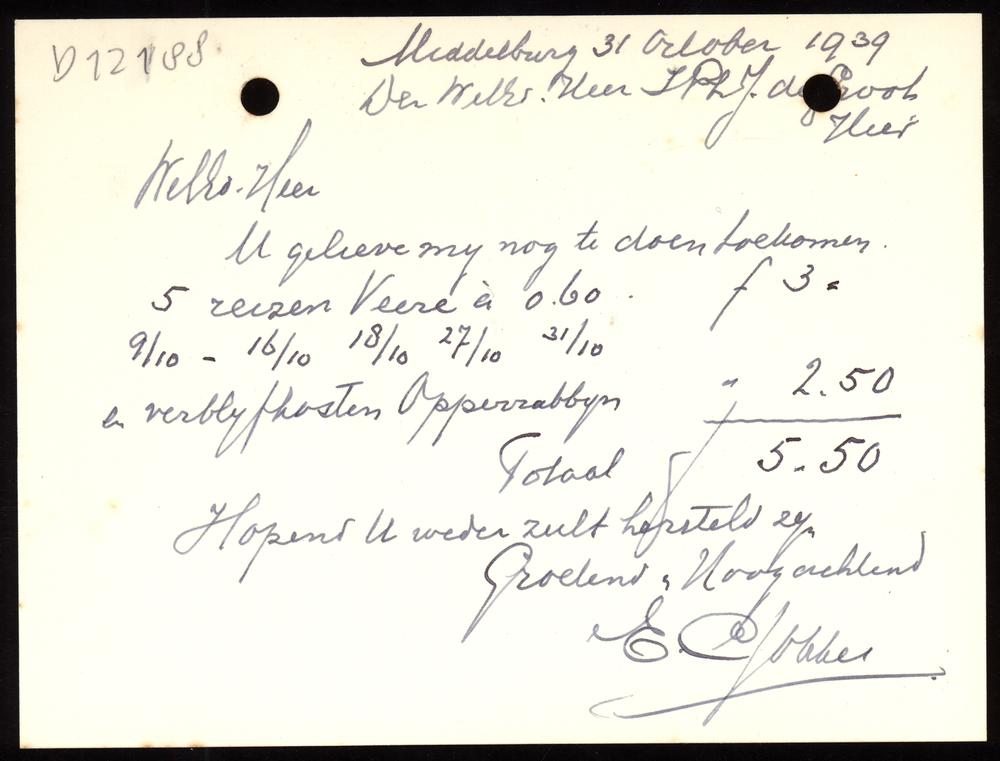 D12188
Middelburg 31 October 1939
Den WelEd. Heer I Ph J. de Groot
Hier
WelEd. Heer
U gelieve my nog te doen toekomen.
5 reizen Veere à 0.60 . f 3 =
9/10 - 16/10 18/10 27/10 31/10
en verblyfkosten Opperrabbyn " 2.50
Totaal f 5.50
Hopend U weder zult hersteld zyn
Groetend, Hoogachtend
E.